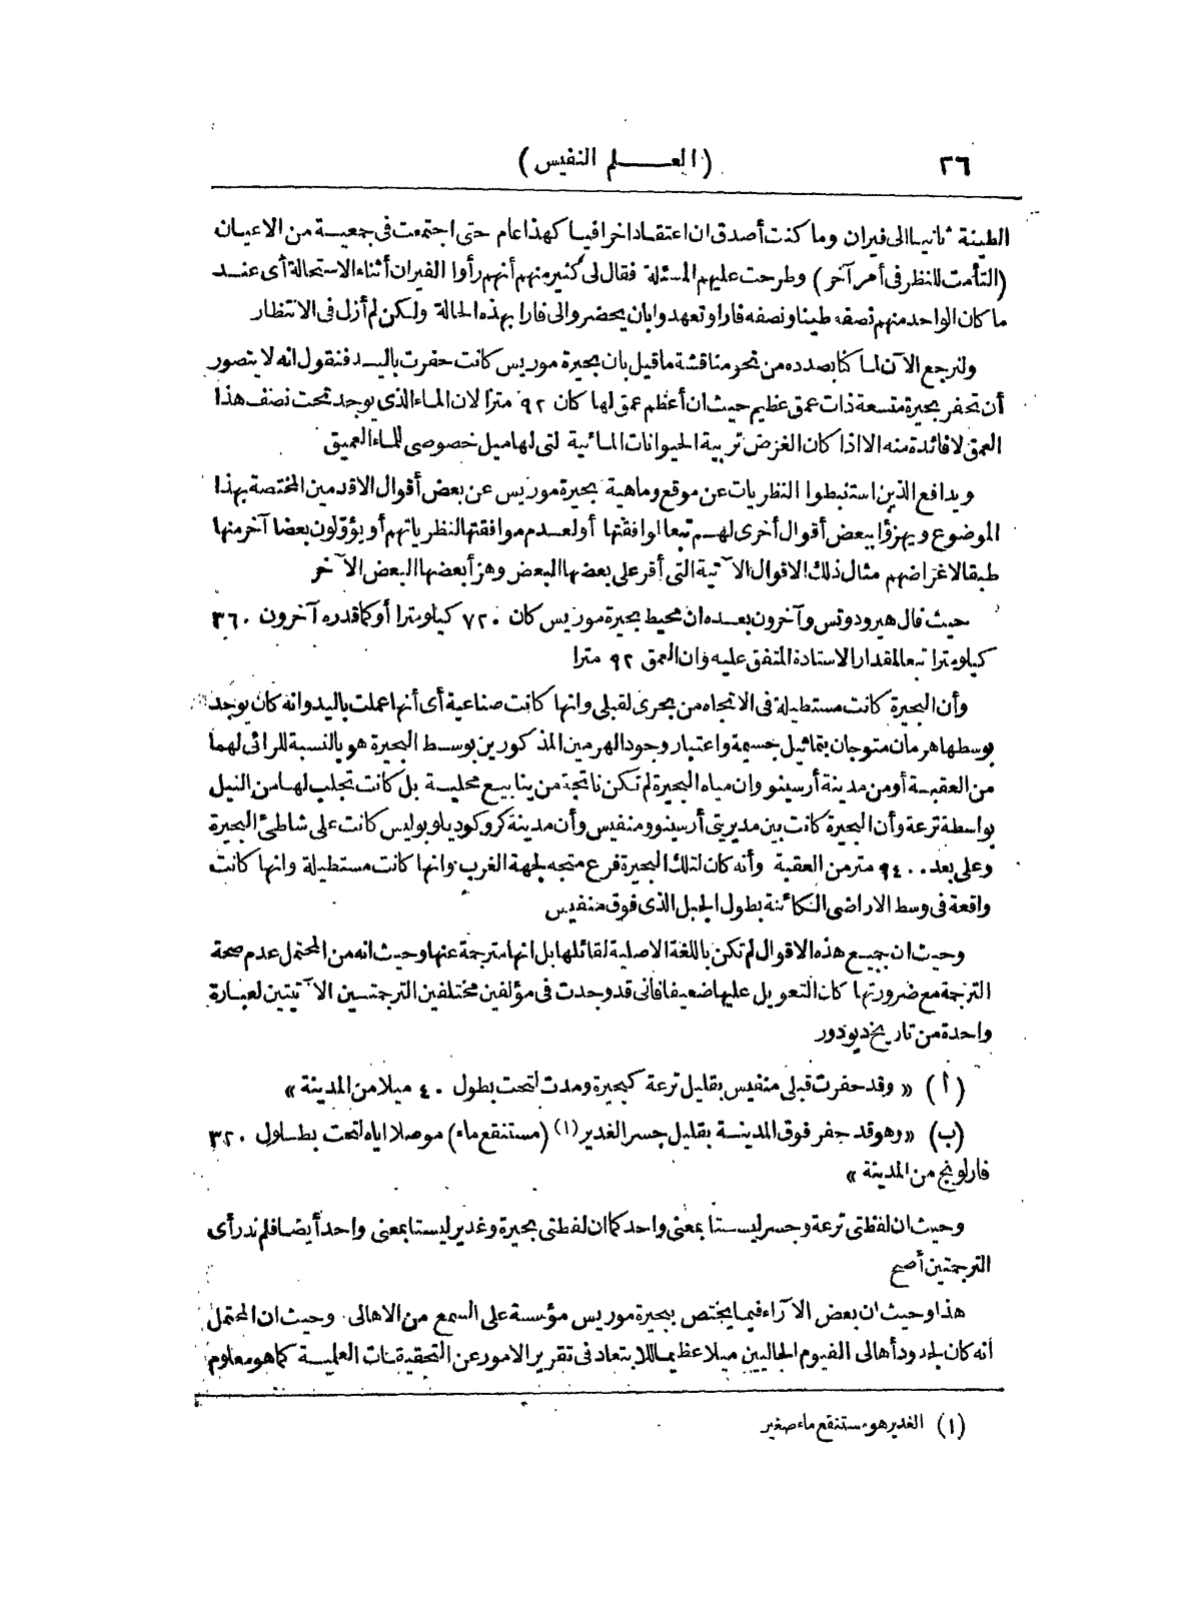 ٢٦
(العـــلم النفيس)
الطينة ثانيا الى فيران وما كنت أصدق ان اعتقادا خرافيا كهذا عام حتى اجتمعت فى جمعية من الاعيان
(التأمت للنظر فى أمر آخر) وطرحت عليهم المسئلة فقال لى كثير منهم أنهم رأوا الفيران أثناء الاستحالة أى عند
ما كان الواحد منهم نصفه طينا ونصفه فارا وتعهدوا بان يحضروا لى فارا بهذه الحالة ولكن لم أزل فى الانتظار
ولنرجع الآن لما كنا بصدده من نحو مناقشة ما قيل بان بحيرة موريس كانت حفرت باليد فنقول انه لا يتصور
أن تحفر بحيرة متسعة ذات عمق عظيم حيث ان أعظم عمق لها كان ٩٢ مترا لان الماء الذى يوجد تحت نصف هذا
العمق لا فائدة منه الا اذا كان الغرض تربية الحيوانات المائية لتى لها ميل خصوصى للماء العميق
ويدافع الذين استنبطوا النظريات عن موقع وماهية بحيرة موريس عن بعض أقوال الاقدمين المختصة بهذا
الموضوع ويهزؤا ببعض أقوال أخرى لهم تبعا لوافقتها أو لعدم موافقتها لنظرياتهم أو يؤولون بعضا آخر منها
طبقا لاغراضهم مثال ذلك الاقوال الآتية التى أقر على بعضها البعض وهزأ ببعضها البعض الآخر
حيث قال هيرودوتس وآخرون بعده ان محيط بحيرة موريس كان ٧٢٠ كيلومترا أو كما قدره آخرون ٣٦٠
كيلومترا تبعا لمقدار الاستادة المتفق عليه وان العمق ٩٢ مترا
وأن البحيرة كانت مستطيلة فى الاتجاه من بحرى لقبلى وانها كانت صناعية أى أنها عملت باليد وانه كان يوجد
بوسطها هرمان متوجان بتماثيل جسيمة واعتبار وجود الهرمين المذكورين بوسط البحيرة هو بالنسبة للرائى لهما
من العقبة أو من مدينة أرسينو وان مياه البحيرة لم تكن ناتجة من ينابيع محلية بل كانت تجلب لها من النيل
بواسطة ترعة وأن البحيرة كانت بين مديريتى أرسينو ومنفيس وأن مدينة كروكوديلوبوليس كانت على شاطئ البحيرة
وعلى بعد ٩٤٠٠ متر من العقبة وأنه كان لتلك البحيرة فرع متجه لجهة الغرب وانها كانت مستطيلة وانها كانت
واقعة فى وسط الاراضى الكائنة بطول الجبل الذى فوق منفيس
وحيث ان جميع هذه الاقوال لم تكن باللغة الاصلية لقائلها بل انها مترجمة عنها وحيث انه من المحتمل عدم صحة
الترجمة مع ضرورتها كان التعويل عليها ضعيفا فانى قد وجدت فى مؤلفين مختلفين الترجمتين الآتيتين لعبارة
واحدة من تاريخ ديودور
(أ) «وقد حفرت قبلى منفيس بقليل ترعة كبحيرة ومدت لتحت بطول ٤٠ ميلا من المدينة»
(ب) «وهو قد حفر فوق المدينة بقليل جسر الغدير(١) (مستنقع ماء) موصلا اياه لتحت بطول ٣٢٠
فارلونج من المدينة»
وحيث ان لفظتى ترعة وجسر ليستا بمعنى واحد كما ان لفظتى بحيرة وغدير ليستا بمعنى واحد أيضا فلم ندر أى
الترجمتين أصح
هذا وحيث ان بعض الآراء فيما يختص ببحيرة موريس مؤسسة على السمع من الاهالى وحيث ان المحتمل
انه كان لجدود أهالى الفيوم الحاليين ميلا عظيما للابتعاد فى تقرير الامور عن التحقيقات العلمية كما هو معلوم
(١) الغدير هو مستنقع ماء صغير